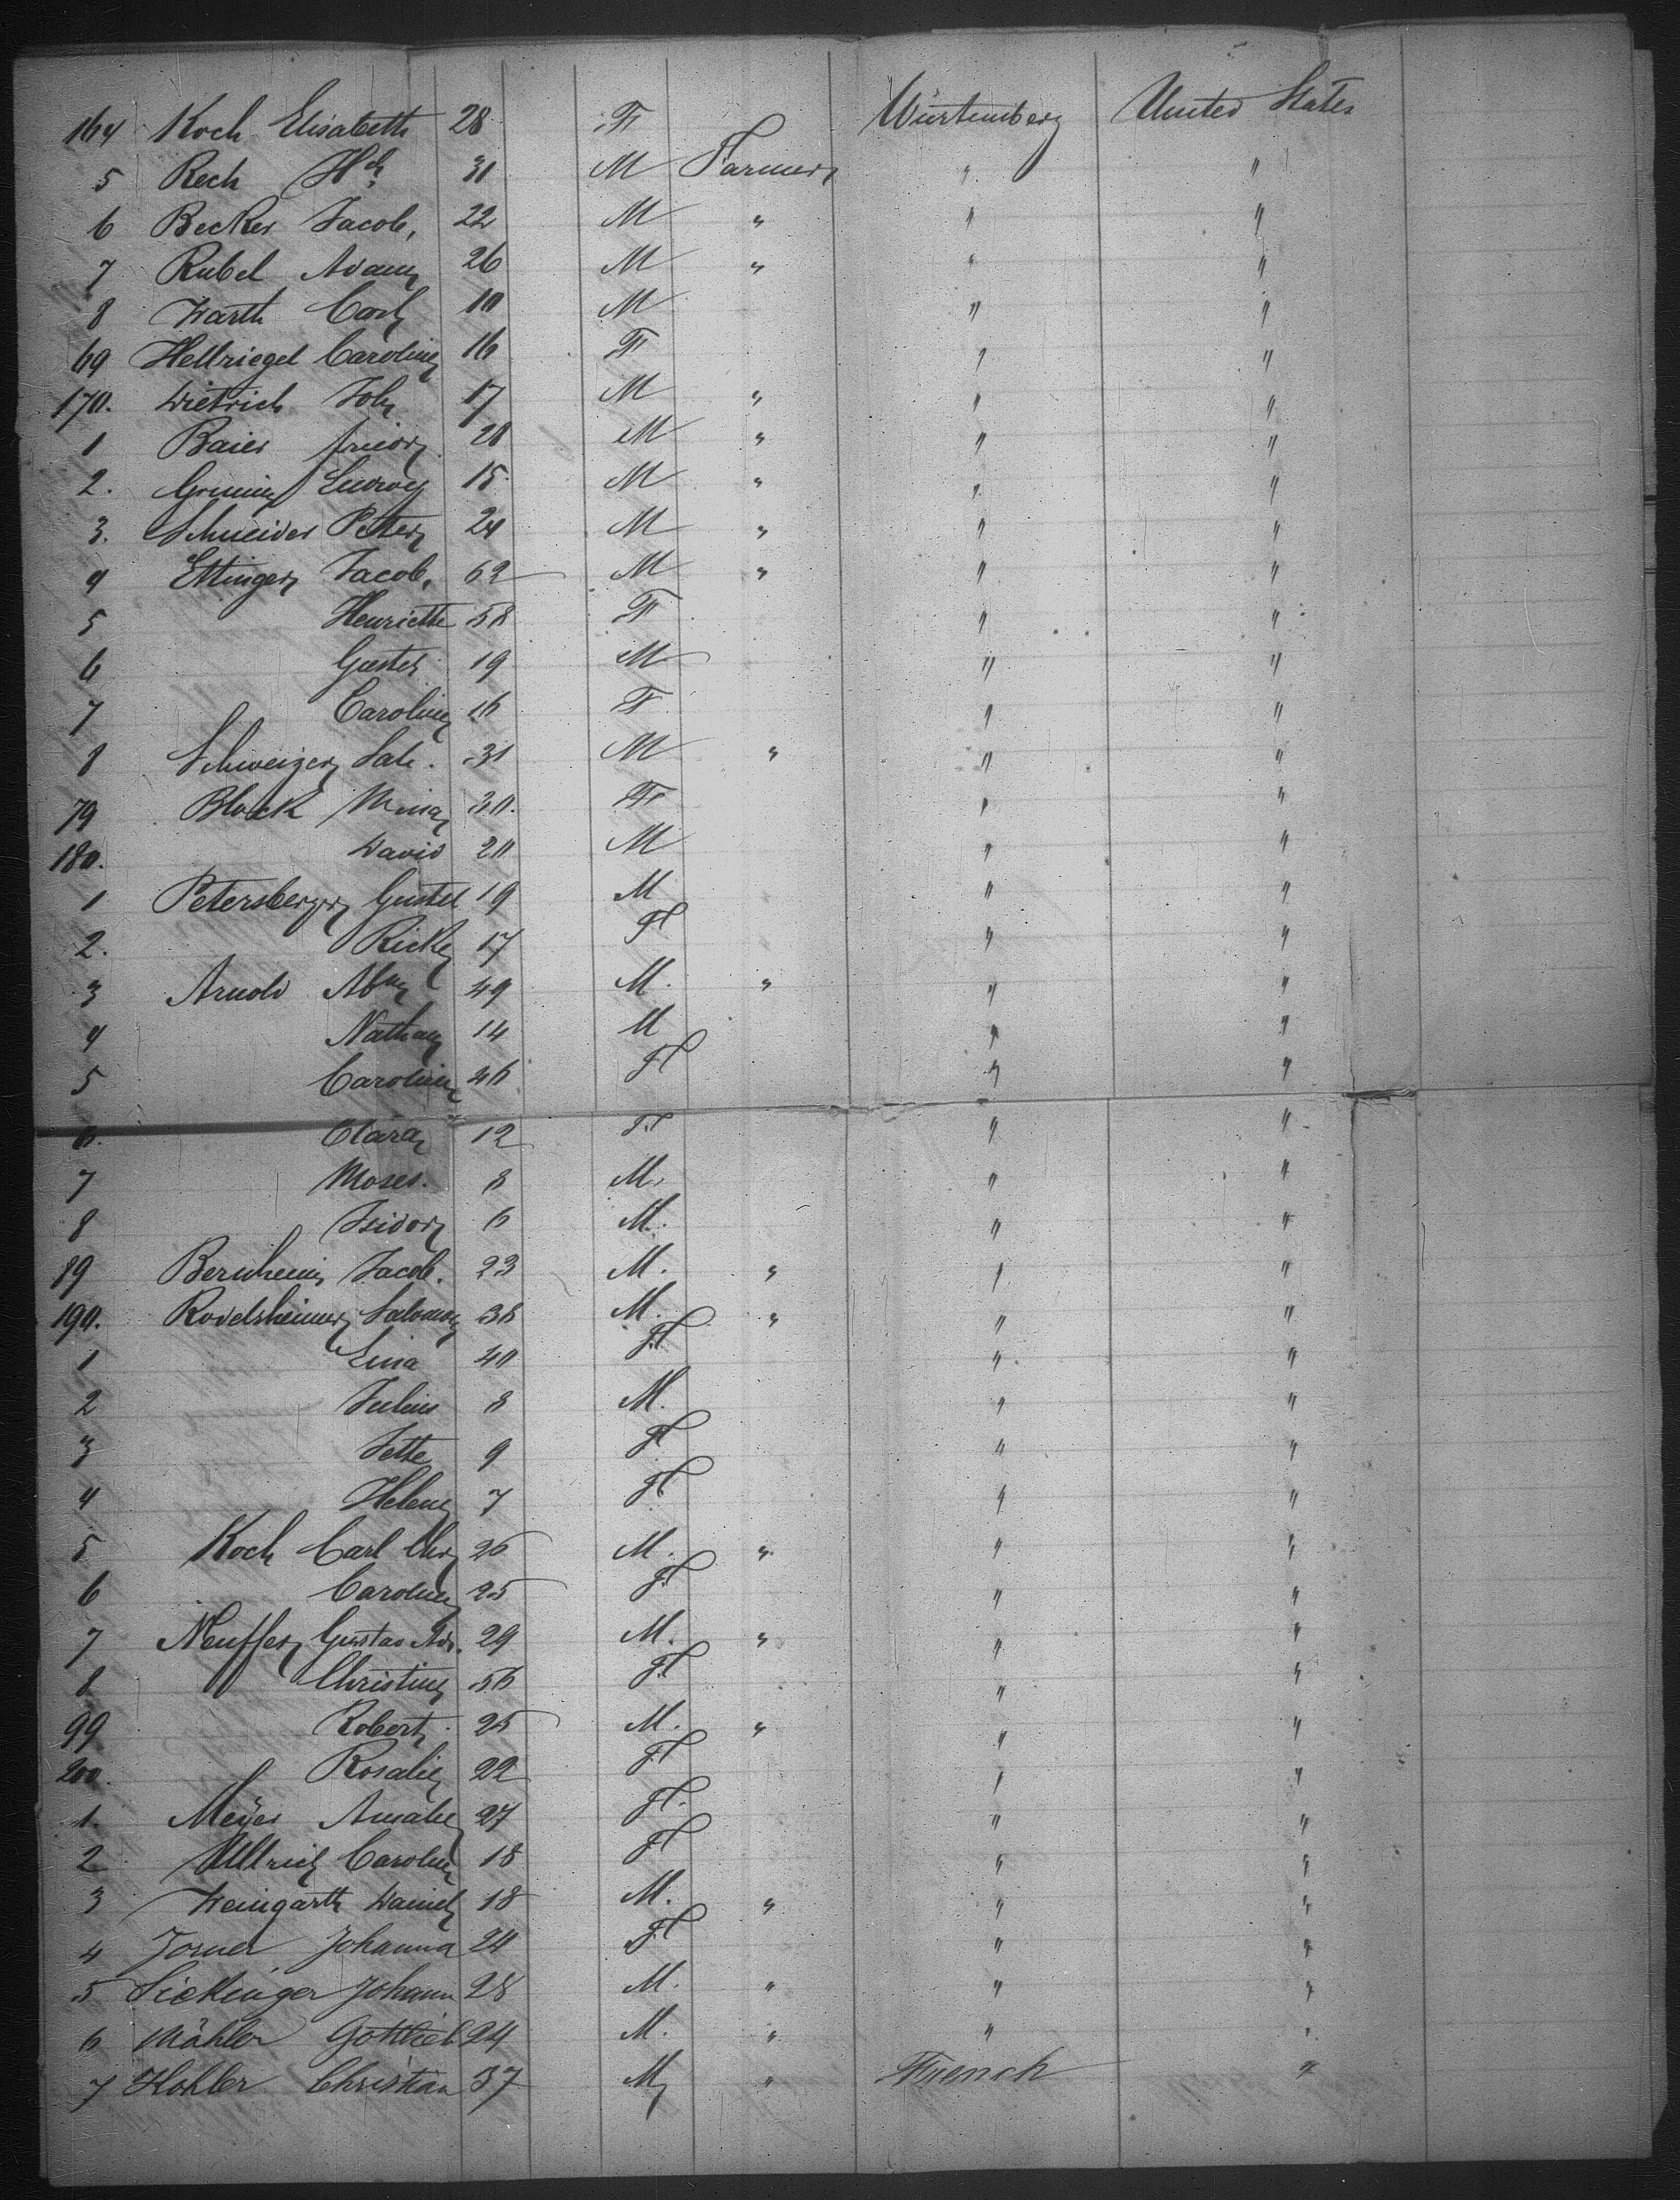 164 Koch Elisabeth 28 F Würtemberg United States
5 Rech Hch 31 M Farmer " "
6 Becker Jacob, 22 M " " "
7 Rubel Adam 26 M " " "
8 Warth Carl 10 M " "
69 Hellriegel Caroline 16 F " "
170. Dietrich Joh 17 M " " "
1 Baier Friedr 20 M " " "
2. Ludwig 15 M " " "
3. Schneider Peter 24 M " " "
4 Ettinger Jacob, 62 M " " "
5 Henriette 58 F " "
6 Gustel 19 M " "
7 Caroline 16 F " "
8 Schweizer 31 M " " "
79 Block Mina 30. F " "
180. David 20 M " "
1 Petersberger Gustel 19 M " "
2. Ricke 17 F " "
3 Arnold Abm 49 M. " " "
4 Nathan 14 M " "
5 Caroline 46 F " "
6. Clara 12 F " "
7 Moses. 8 M. " "
8 Isidor 6 M. " "
89 Bernheim Jacob. 23 M. " " "
190. Rodelsheimer Salomon 38 M. " " "
1 Lina 40 F. " "
2 Julius 8 M. " "
3 Jette 9 F " "
4 Helene 7 F. " "
5 Koch Carl Chr 26 M. " " "
6 Caroline 25 F. " "
7 Neuffer Gustav Ad. 29 M. " " "
8 Christine 56 F. " "
99 Robert 25 M. " " "
200. Rosalie 22 F " "
1. Meÿer Amalie 27 F. " "
2 Ullrich Caroline 18 F " "
3 Weingarth Daniel 18 M. " " "
4 Johanna 20 F. " "
5 Sickinger Johann 28 M. " " "
6 Mähler Gottlieb 24 M. " " "
7 Kohler Christian 37 M " French "